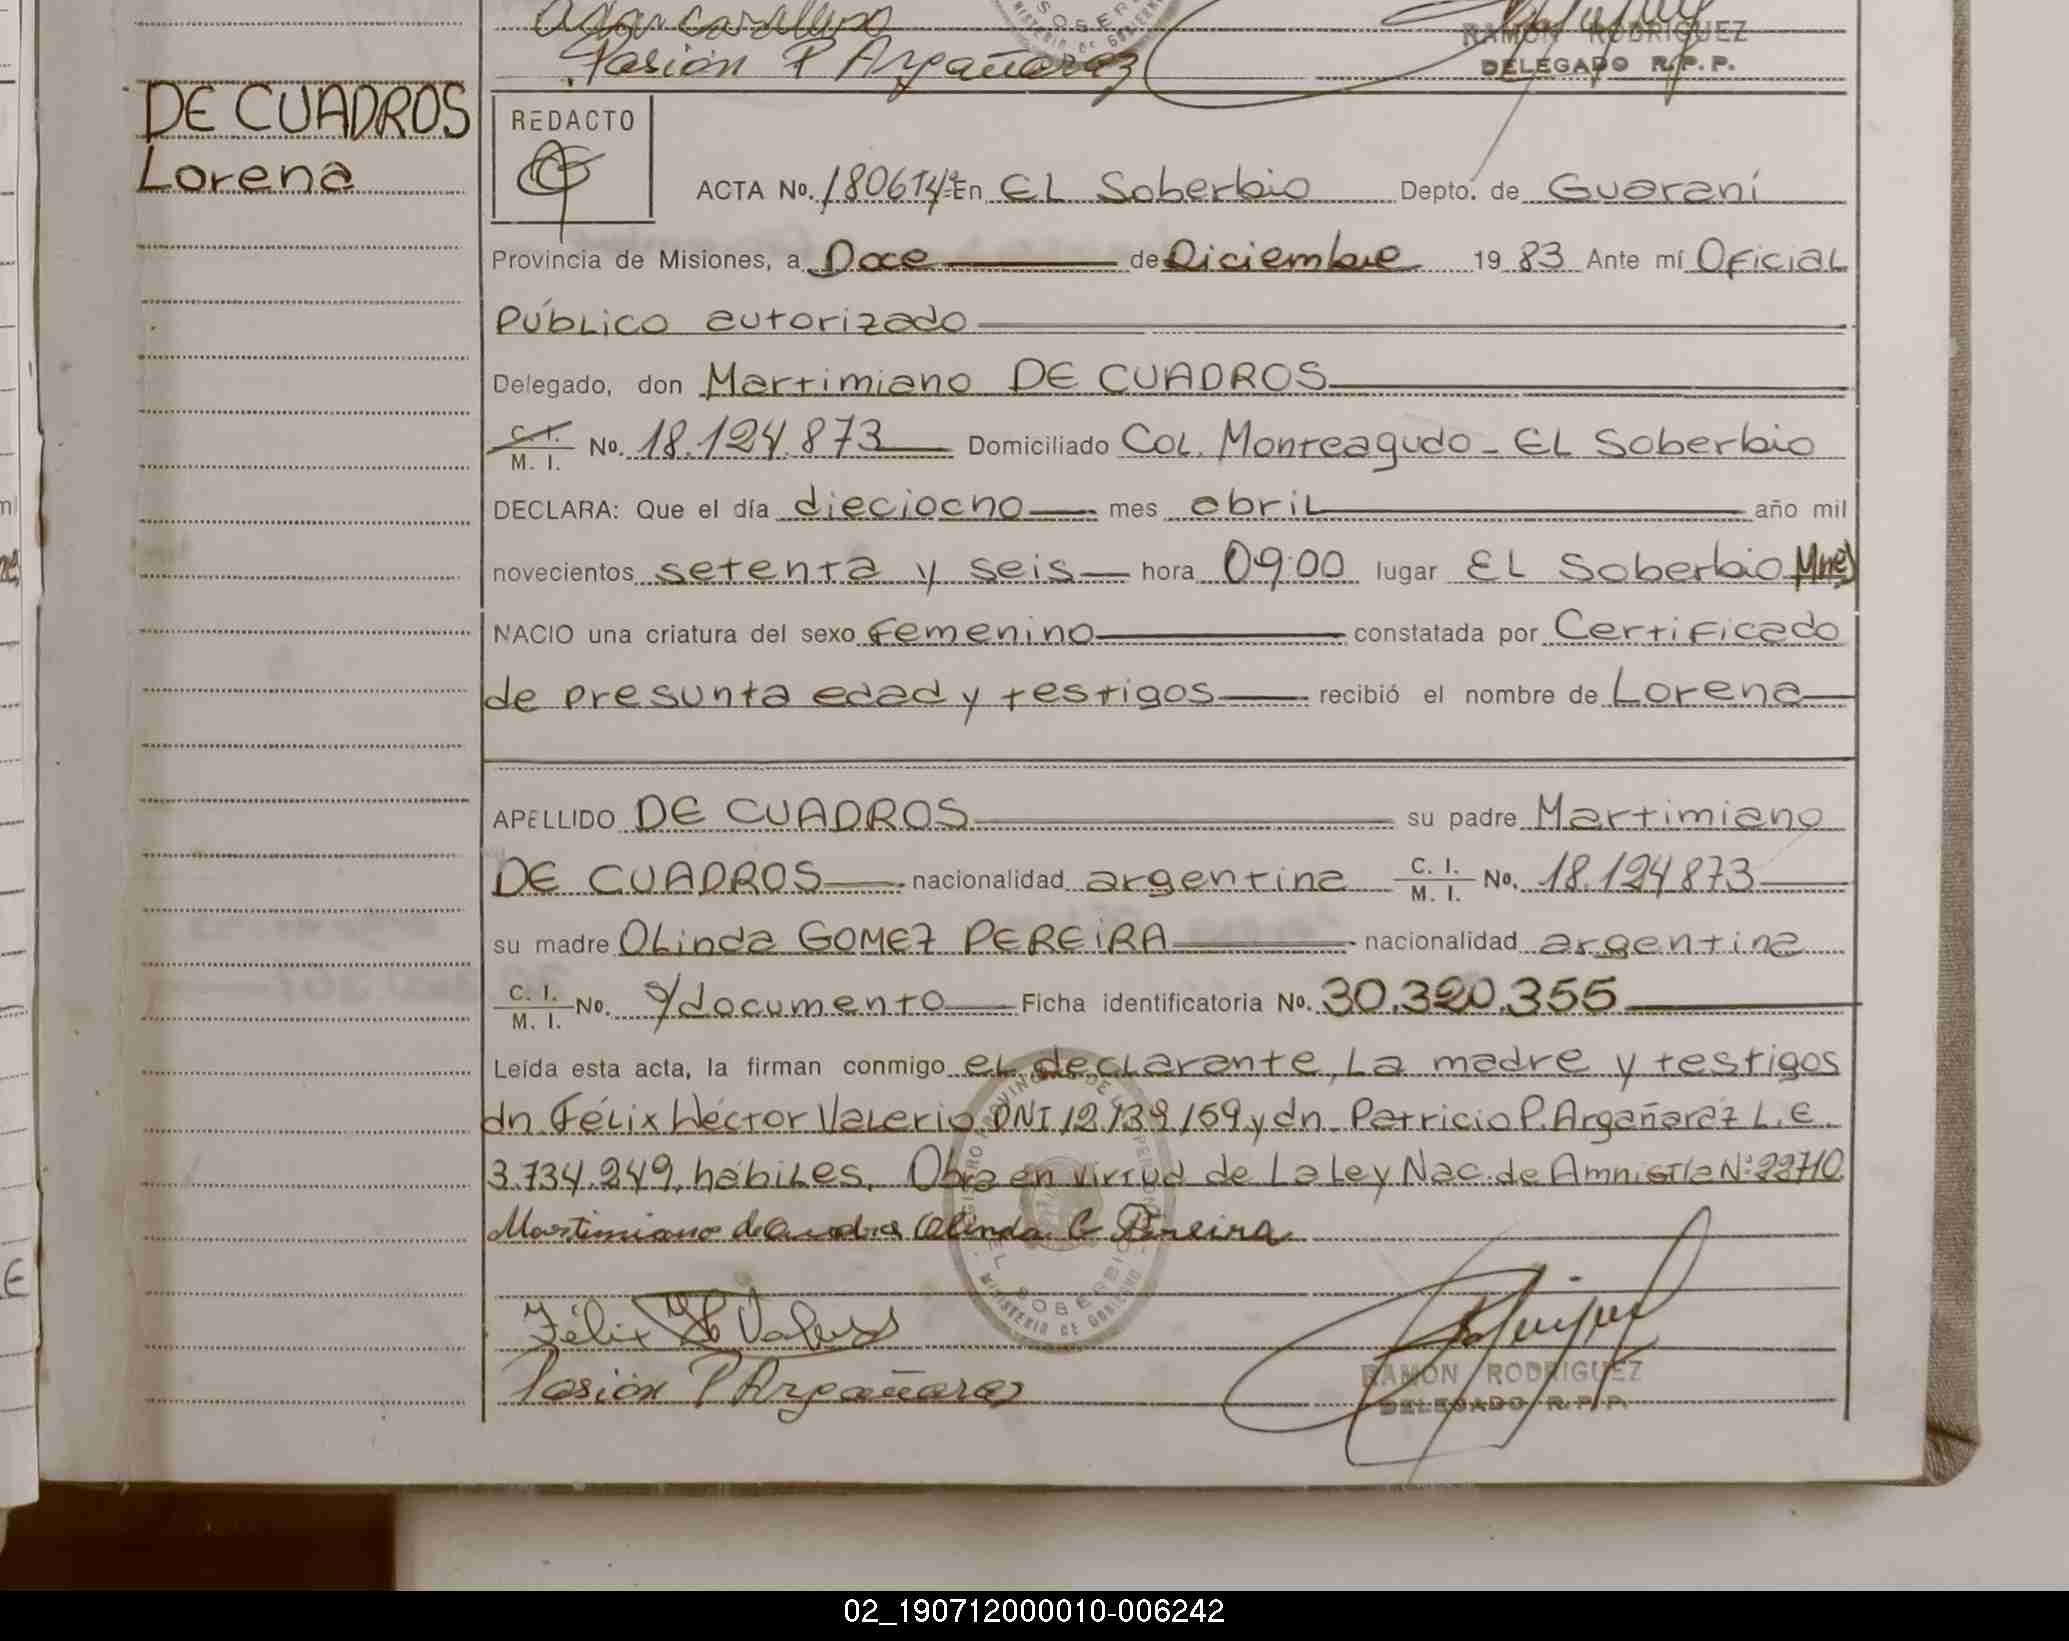 Pasión P Argañaraz
RAMON RODRIGUEZ
DELEGADO R.P.P.
DE CUADROS
Lorena
REDACTO
ACTA No. 180614ª En EL Soberbio Depto. de Guaraní
Provincia de Misiones, a Doce de Diciembre 19 83 Ante mí OFICIAL
PÚBLICO autorizado
Delegado, don Martimiano DE CUADROS
C. I. / M. I. No. 18.124.873 Domiciliado COL. Monteagudo - EL Soberbio
DECLARA: Que el día dieciocho mes abril año mil
novecientos setenta y seis hora 09:00 lugar EL Soberbio Mnes
NACIO una criatura del sexo femenino constatada por Certificado
de presunta edad y testigos recibió el nombre de Lorena
APELLIDO DE CUADROS su padre Martimiano
DE CUADROS nacionalidad argentina C. I. / M. I. No. 18.124.873
su madre OLinda GOMEZ PEREIRA nacionalidad argentina
C. I. / M. I. No. s/documento Ficha identificatoria No. 30.320.355
Leída esta acta, la firman conmigo el declarante, La madre y testigos
dn. Félix Héctor Valerio DNI 12.139.159 y dn. Patricio P. Argañaraz L.E.
3.734.249, hábiles. Obra en virtud de La Ley Nac. de Amnistía Nº 22710
Martimiano de Cuadros Olinda G Pereira
EL SOBERBIO
MINISTERIO DE GOBIERNO
Félix H Valerio
Pasión P Argañaraz
RAMON RODRIGUEZ
DELEGADO R.P.P.
02_190712000010-006242